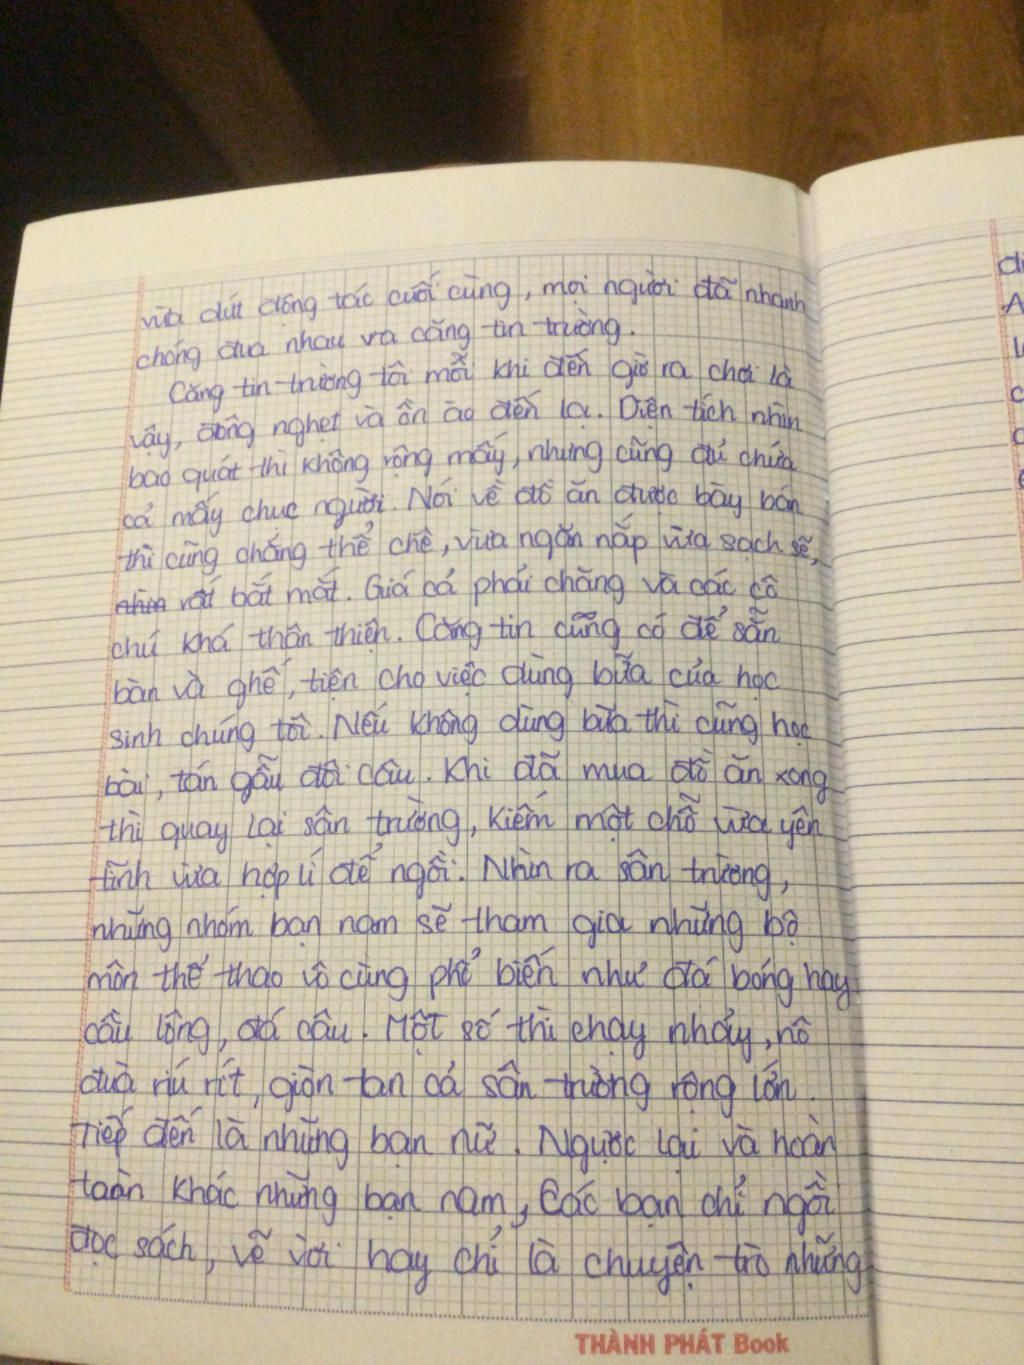 vừa dứt động tác cuối cùng, mọi người đã nhanh
chóng đua nhau ra căng tin trường.
Căng tin trường tôi mỗi khi đến giờ ra chơi là
vậy, đông nghẹt và ồn ào đến lạ. Diện tích nhìn
bao quát thì không rộng mấy, nhưng cũng đủ chứa
cả mấy chục người. Nói về đồ ăn được bày bán
thì cũng chẳng thể chê, vừa ngăn nắp vừa sạch sẽ,
nhìn rất bắt mắt. Giá cả phải chăng và các cô
chú khá thân thiện. Căng tin cũng có để sẵn
bàn và ghế, tiện cho việc dùng bữa của học
sinh chúng tôi. Nếu không dùng bữa thì cũng học
bài, tán gẫu đôi câu. Khi đã mua đồ ăn xong
thì quay lại sân trường, kiếm một chỗ vừa yên
tĩnh vừa hợp lí để ngồi. Nhìn ra sân trường,
những nhóm bạn nam sẽ tham gia những bộ
môn thể thao vô cùng phổ biến như đá bóng hay
cầu lông, đá cầu. Một số thì chạy nhảy, nô
đùa ríu rít, giòn tan cả sân trường rộng lớn.
Tiếp đến là những bạn nữ. Ngược lại và hoàn
toàn khác những bạn nam, Các bạn chỉ ngồi
đọc sách, vẽ vời hay chỉ là chuyện trò những
THÀNH PHÁT Book